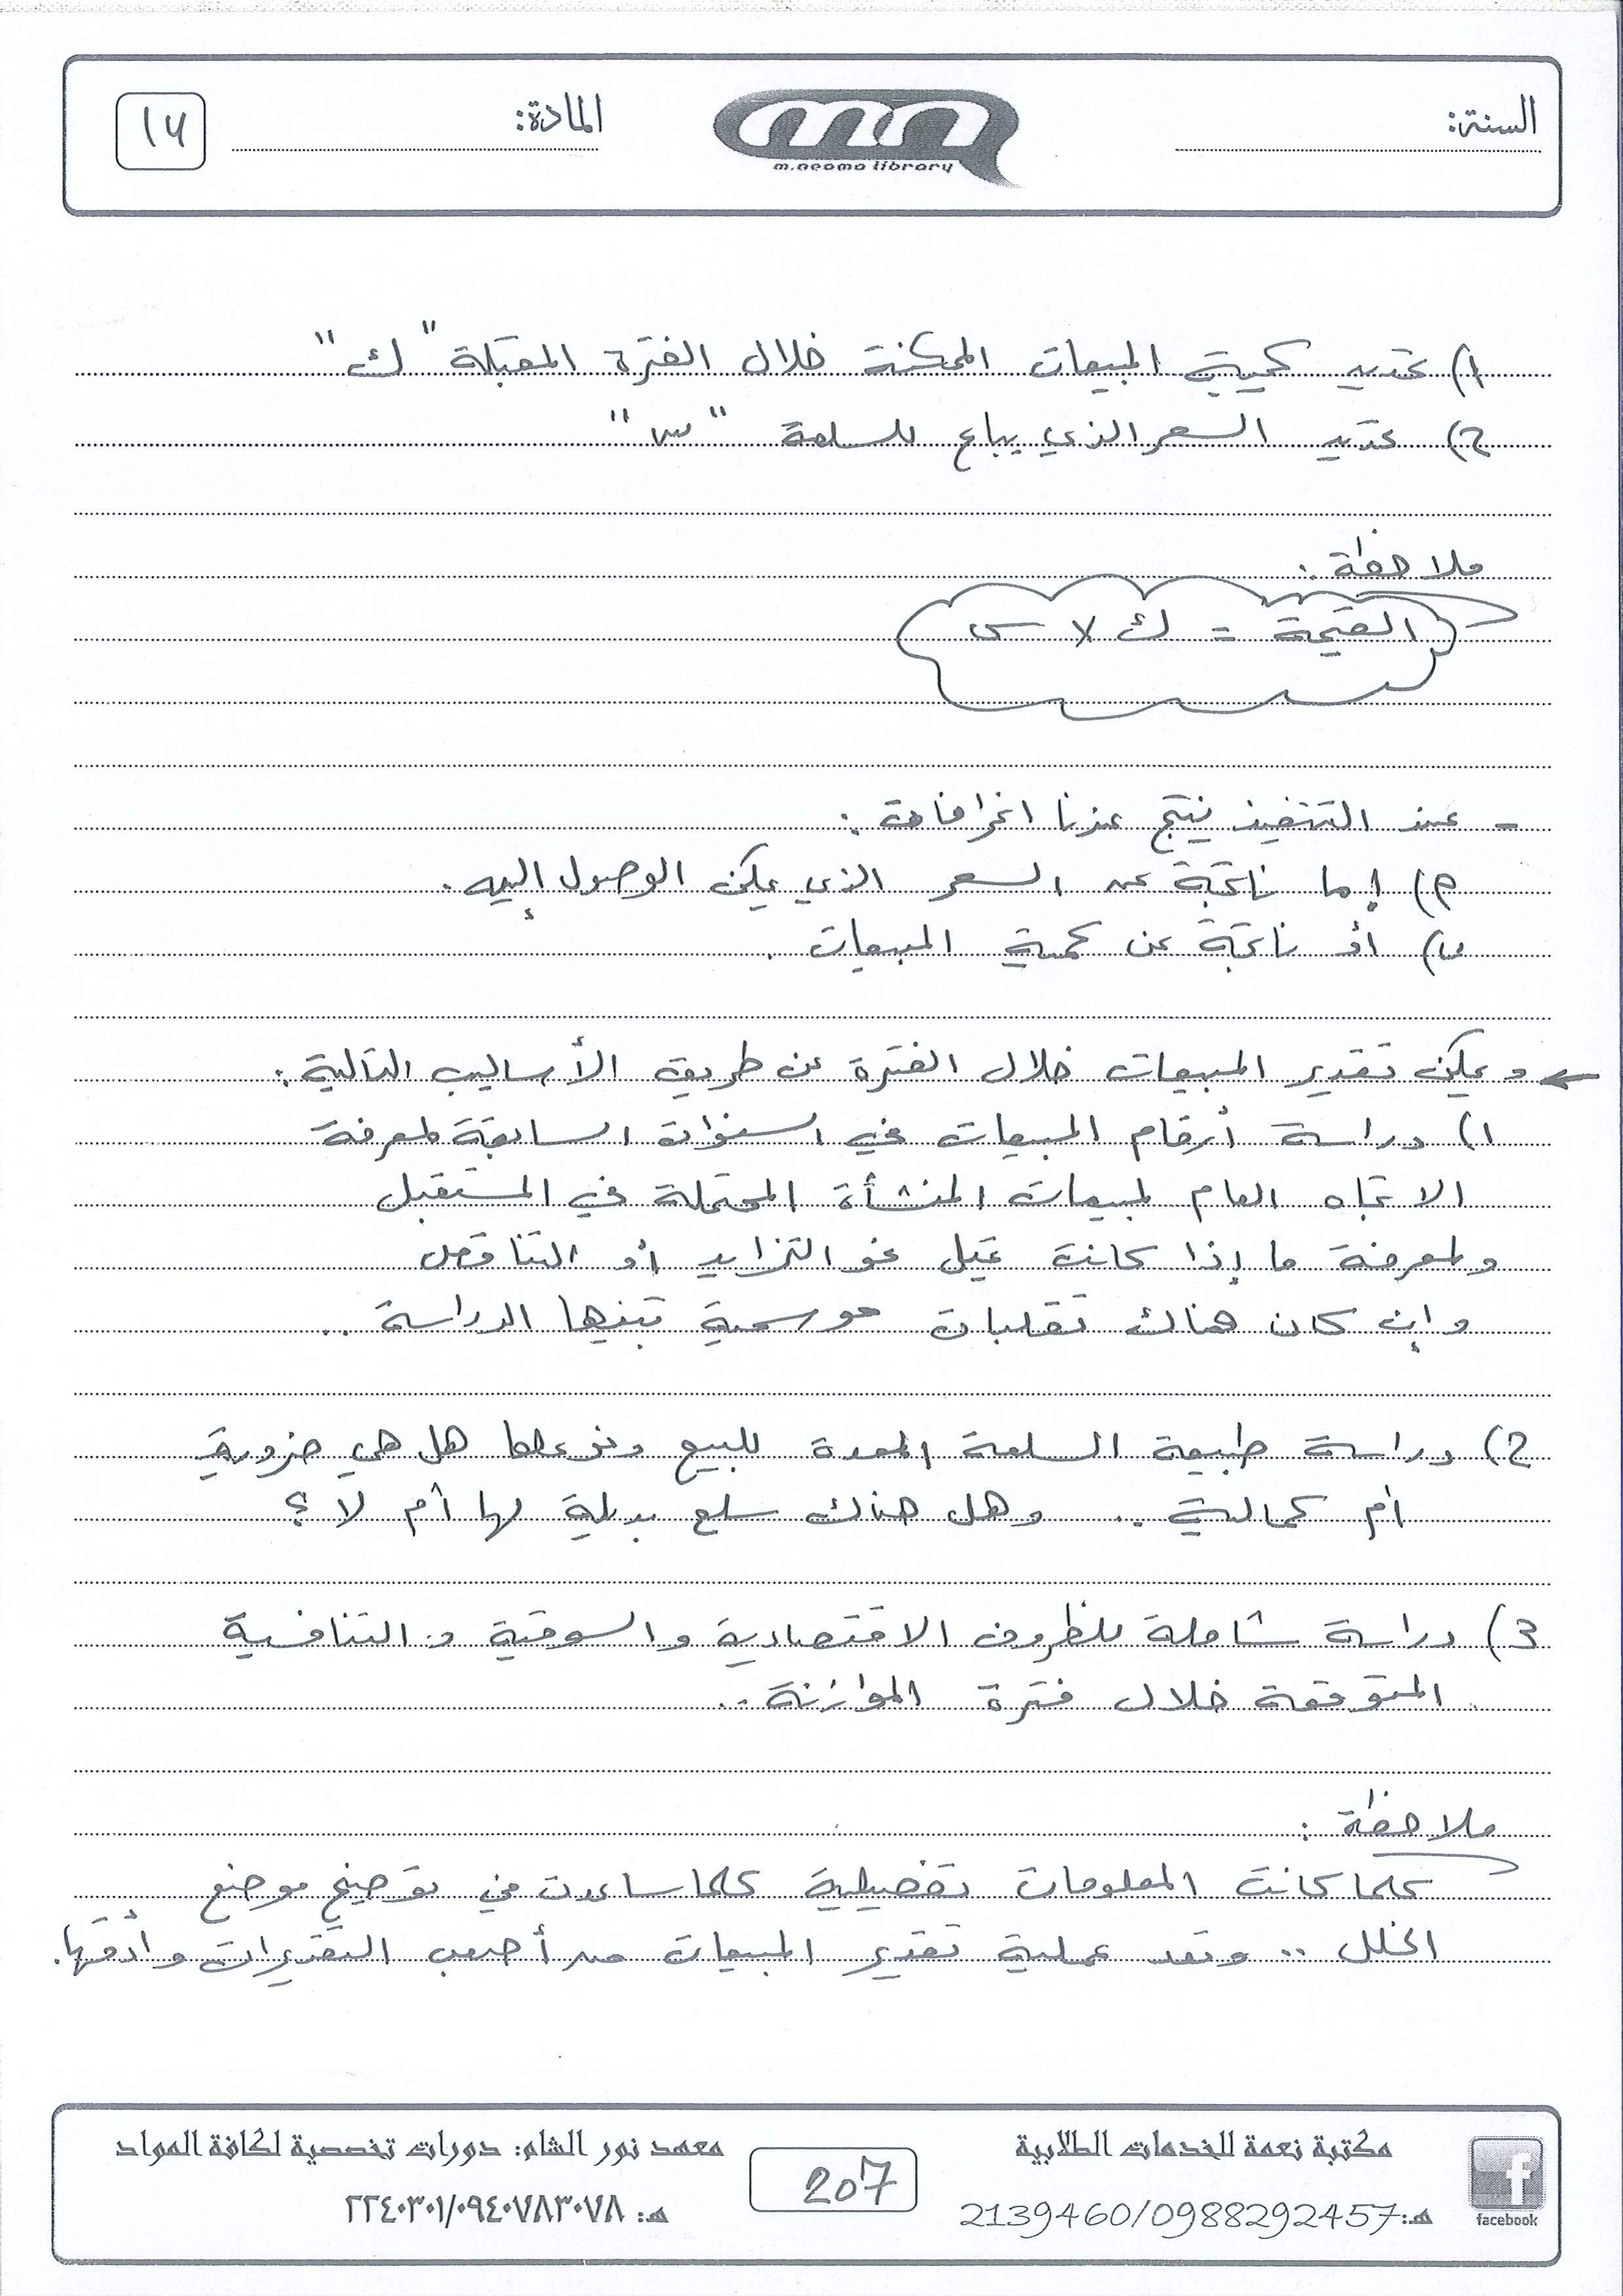 السنة:
m.neoma library
المادة:
١٧
١) تحديد كمية المبيعات الممكنة خلال الفترة المقبلة "ك"
2) تحديد السعر الذي يباع للسلعة "س"
ملاحظة:
القيمة = ك × س
- عند التنفيذ ينتج عندنا انحرافات:
م) إما ناتجة عن السعر الذي يمكن الوصول إليه.
ب) أو ناتجة عن كمية المبيعات.
← ويمكن تقدير المبيعات خلال الفترة عن طريق الأساليب التالية:
١) دراسة أرقام المبيعات في السنوات السابقة لمعرفة
الاتجاه العام لمبيعات المنشأة المحتملة في المستقبل
ولمعرفة ما إذا كانت تميل نحو التزايد أو التناقص
وإن كان هناك تقلبات موسمية تبنيها الدراسة ..
2) دراسة طبيعة السلعة المعدة للبيع ونوعها هل هي ضرورية
أم كمالية .. وهل هناك سلع بديلة لها أم لا؟
3) دراسة شاملة للظروف الاقتصادية والسوقية والتنافسية
المتوقعة خلال فترة الموازنة ..
ملاحظة:
كلما كانت المعلومات تفصيلية كلما ساعدت في توضيح موضع
الخلل .. وتعد عملية تقدير المبيعات من أصعب التقديرات وأدقها.
مكتبة نعمة للخدمات الطلابية
هـ: 2139460/0988292457
facebook
207
معهد نور الشام: دورات تخصصية لكافة المواد
هـ: ٢٢٤٠٣٠١/٠٩٤٠٧٨٣٠٧٨